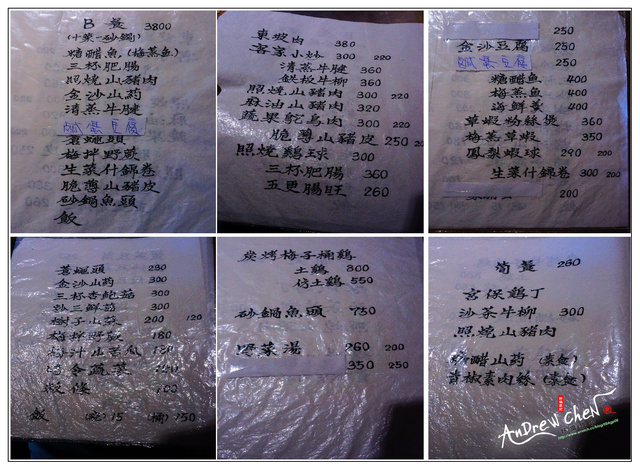 B餐 3800
(十菜一砂鍋)
糖醋魚(梅蒸魚)
三杯肥腸
照燒山豬肉
金沙山药
清蒸牛腱
鹹蛋豆腐
蒼蠅頭
梅拌野蕨
生菜什錦卷
脆薄山豬皮
砂鍋魚頭
飯
東坡肉 380
客家小炒 300 220
清蒸牛腱 360
鉄板牛柳 360
照燒山豬肉 300 220
麻油山豬肉 320
蔬果鴕鳥肉 300 220
脆薄山豬皮 250
照燒鷄球 300
三杯肥腸 360
五更腸旺 260
250
金沙豆腐 250
鹹蛋豆腐 250
糖醋魚 400
梅蒸魚 400
海鮮羹 400
草蝦粉絲煲 360
梅蒸草蝦 350
鳳梨蝦球 290 200
生菜什錦卷 300 200
200
蒼蠅頭 230
金沙山药 300
三杯杏鮑菇 300
炒三鮮菇 300
樹子山蘇 200 120
梅拌野蕨 180
飯 (碗)15 (桶)150
炭烤梅子桶鷄
土鷄 800
仿土鷄 550
砂鍋魚頭 750
湯 260 200
350 250
簡餐 260
宮保鷄丁
沙茶牛柳 300
照燒山豬肉
糖醋山药(素食)
青椒素肉絲(素食)
AnDrew CheN